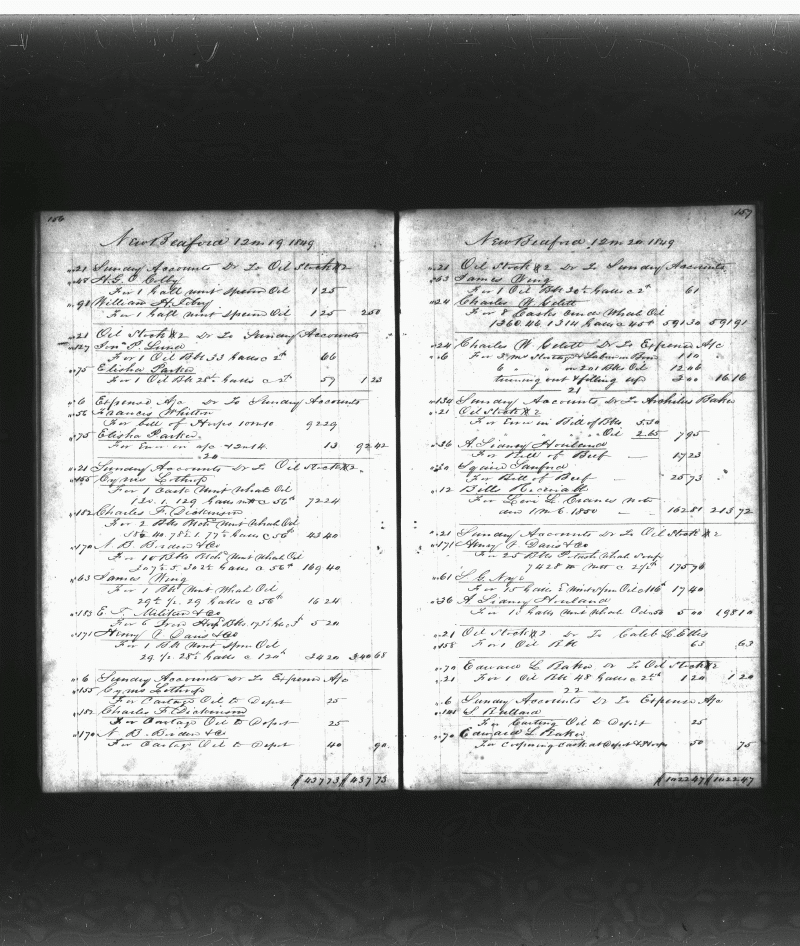 156
New Bedford 12m 19 1849
21 Sunday Accounts Dr To Oil Stock #2
48 H.G.O. Colby
For 1 Gall Wint Sperm Oil 125
91 William H.
For 1 Gall Wint Sperm Oil 125 250
21 Oil Stock #2 Dr To Sunday Accounts
127 Jon P. Lund
For 1 Oil Bk 33 Galls c 2cts 66
75 Elisha Parker
For 1 Oil Bk 28½ Galls c 2cts 57 1 23
6 Expense A/c Dr To Sunday Accounts
56 Francis Whiton
For bill of Hoops 10m10 9229
75 Elisha Parker
For Error in a/c 12m14 13 92 42
20
21 Sunday Accounts Dr To Oil Stock #2
155 Cyrus Lothrop
For 1 Cask Wint Whale Oil
130. 1. 129 Galls nett c 56cts 7224
182 Charles F. Dickinson
For 2 Bbls Blch Wint Whale Oil
78½. 1. 77½ Galls c 56cts 43 40
170 N. B. Borden & Co
For 10 Bbls Blch Wint Whale Oil
307½. 5. 302½ Galls c 56cts 169 40
63 James Wing
For 1 Bk Wint Whale Oil
29½. ½. 29 Galls c 56cts 16 24
183 E. T. Milliken & Co
For 6 Iron Hoop Bbls 173½ Galls c 5 20
171 Henry A Davis & Co
For 1 Bk Wint Sperm Oil
29. ½. 28½ Galls c 120cts 34 20 340 68
6 Sunday Accounts Dr To Expense A/c
155 Cyrus Lothrop
For Cartage Oil to Depot 25
182 Charles F. Dickinson
For Cartage Oil to Depot 25
170 N. B. Borden & Co
For Cartage Oil to Depot 40 90
$437 73 $437 73
157
New Bedford 12m 20 1849
21 Oil Stock #2 Dr To Sunday Accounts
63 James Wing
For 1 Oil Bk 30½ Galls c 2cts 61
24 Charles W.
For 8 Casks Crude Whale Oil
1360. 46. 1314 Galls c 45cts 591 30 591 91
24 Charles W. Dr To Expense A/c
6 For 3 mos Storage & Labor 1 10
6 " " in 201 Bbls 12 06
turning out & filling up 3 00 16 16
21
134 Sunday Accounts Dr To Archelus Baker
21 Oil Stock #2
For Error in Bill of Bbls 5.30
" " " Oil 2.65 7 95
36 A Sidney Howland
For Bill of Beef 17 23
30 Squire Sanford
For Bill of Beef 25 73
12 Bills Receivable
For Levi L. Cranes Note
due 1m 6. 1850 162 81 213 72
21 Sunday Accounts Dr To Oil Stock #2
171 Henry A Davis & Co
For 25 Bbls Whale Soap
7428 nett c 2½cts 175 70
61 S. G. Nye
For 15 Galls Wint Sperm Oil c 116cts 17 40
36 A Sidney Howland
For 10 Galls Wint Whale Oil c 50 5 00 198 10
21 Oil Stock #2 Dr To Caleb L. Ellis
158 For 1 Oil Bk 63 63
70 Edward L. Baker Dr To Oil Stock #2
21 For 1 Oil Bk 48 Galls c 2½ 1 20 1 20
22
6 Sunday Accounts Dr To Expense A/c
S Bullard
For Carting Oil to Depot 25
70 Edward L. Baker
For Coopering Cask at Depot & Hoops 50 75
$1022 47 $1022 47